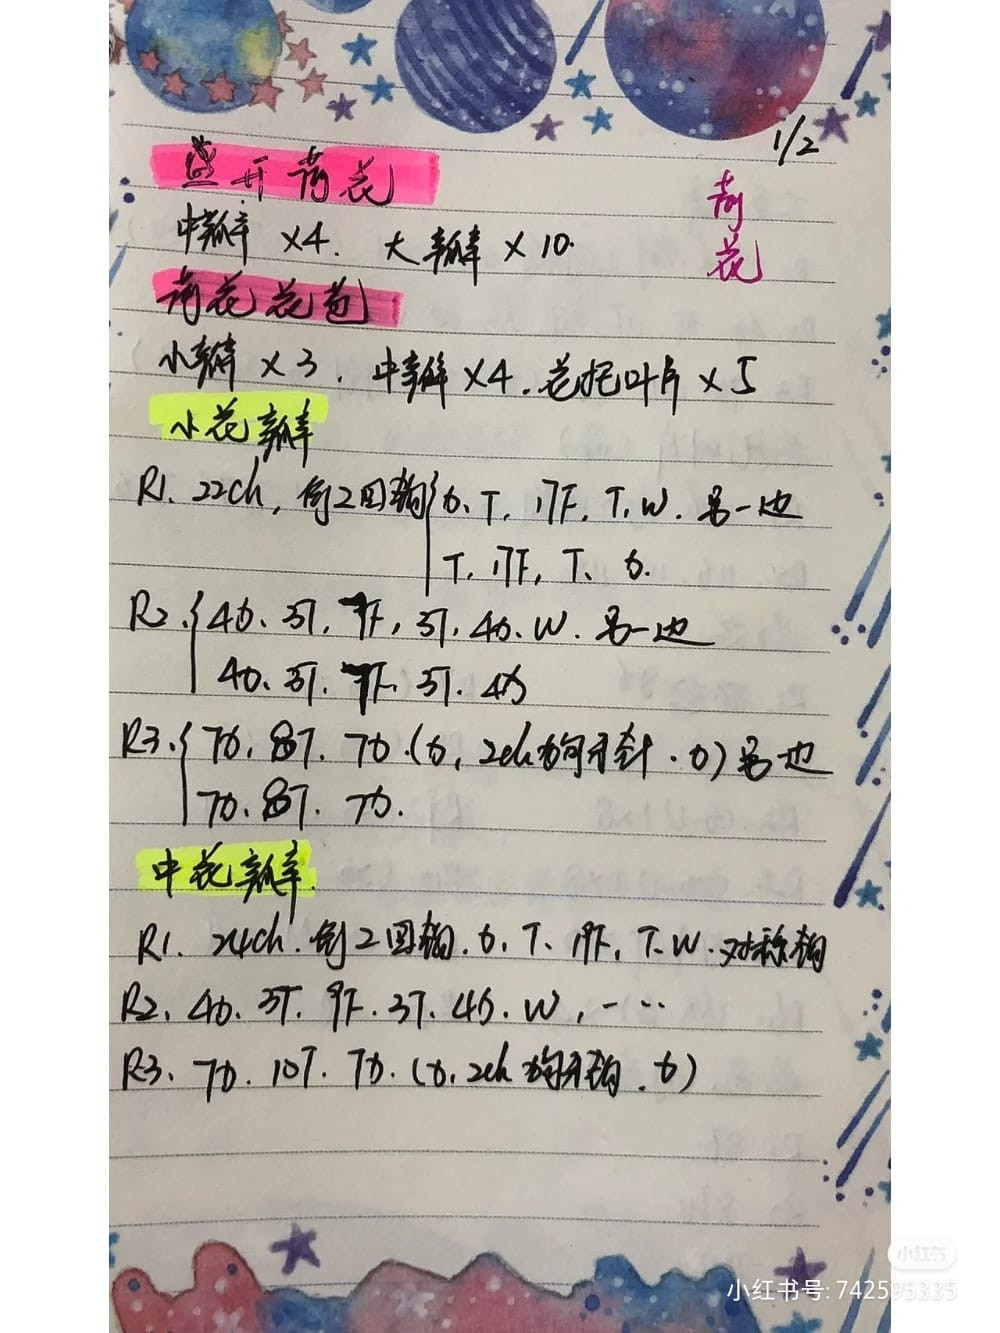 1/2
盛开荷花
荷花
中瓣 ×4. 大瓣 ×10.
荷花花苞
小瓣 ×3. 中瓣 ×4. 花托叶片 ×5
小花瓣
R1. 22ch, 倒2回钩{6. T. 17F. T. W. 另一边
T. 17F, T. 6.
R2.{46. 3T. 9F, 3T. 46. W. 另一边
46. 3T. 9F. 3T. 46
R3.{76. 8T. 76. (6, 2ch 狗牙针. 6) 另边
76. 8T. 76.
中花瓣.
R1. 24ch. 倒2回钩. 6. T. 19F, T. W. 对称钩
R2. 46. 3T. 9F. 3T. 46. W, 一…
R3. 76. 10T. 76. (6. 2ch 狗牙钩. 6)
小红书
小红书号: 742595335